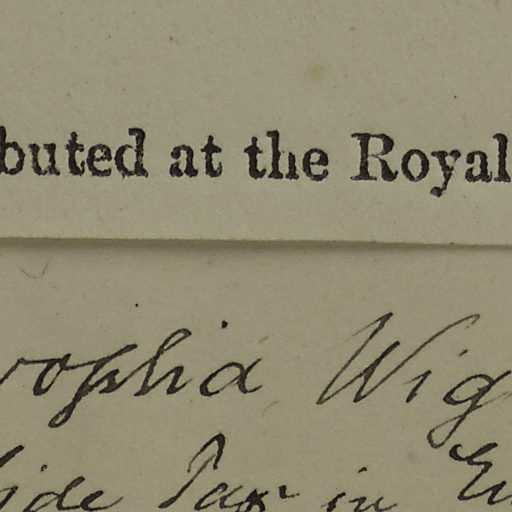 buted at the Royal
rophia Wig
ide Pass in